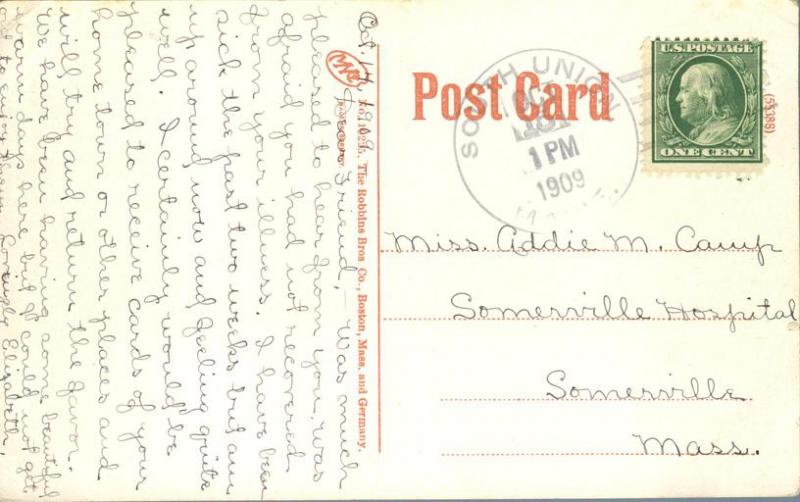 Oct. 14, 1909
Dear Friend, – Was much
pleased to hear from you, was
afraid you had not recovered
from your illness. I have been
sick the past two weeks but am
up around now and feeling quite
well. I certainly would be
pleased to receive cards of your
home town or other places and
will try and return the favor.
We have been having some beautiful
warm days here but I could not get
out to enjoy them. Lovingly Elizabeth.
The Robbins Bros. Co., Boston, Mass. and Germany.
Post Card
(55388)
SOUTH UNION
OCT
1 PM
1909
MAINE.
U.S. POSTAGE
ONE CENT
Miss. Addie M. Camp
Somerville Hospital
Somerville
Mass.